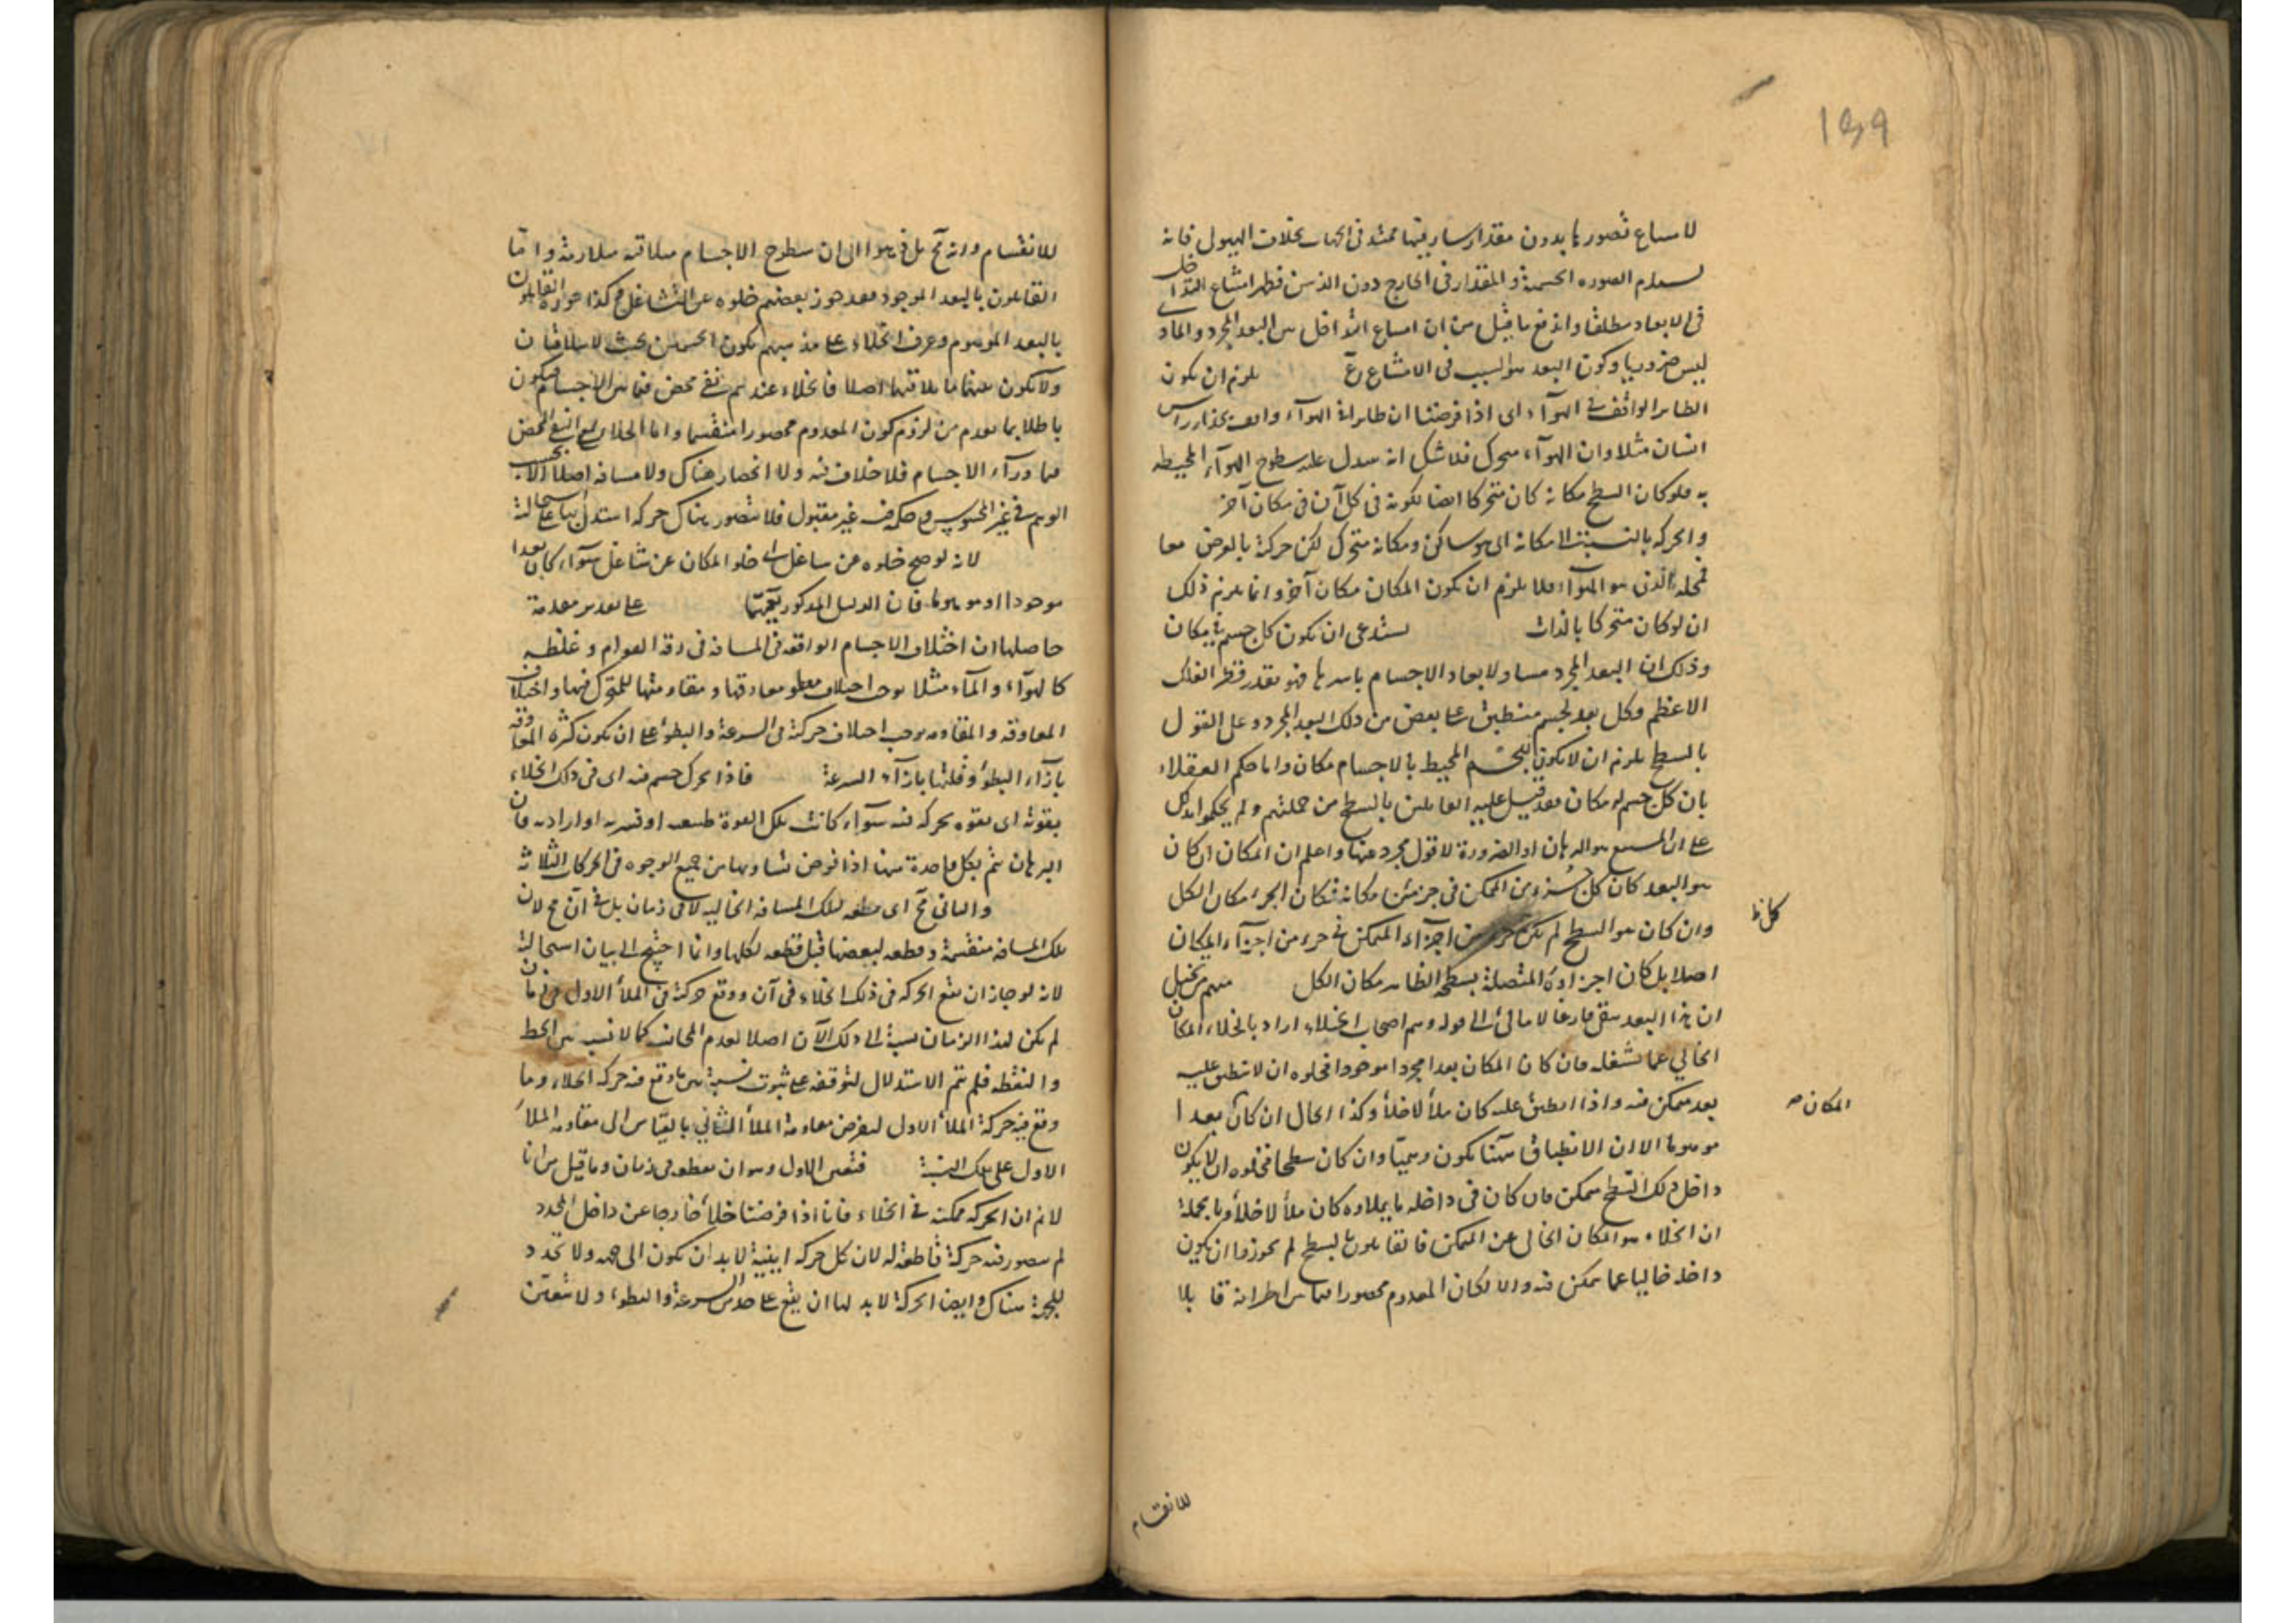 ١٣٩
لامتناع تصورها بدون مقدار سار فيها ممتد في الجهات بخلاف الهيولى فانه
الصورة الجسمية والمقدار في الخارج دون الذهن فظهر امتناع التداخل
في الابعاد مطلقا واندفع ما قيل من ان امتناع التداخل بين البعد المجرد والمادي
ليس ضروريا وكون البعد هو السبب في الامتناع مم يلزم ان يكون
الطائر الواقف في الهواء اى اذا فرضنا ان طائرا في الهواء واقف بحذاء رأس
انسان مثلا وان الهواء متحرك فلا شك انه يتبدل عليه سطوح الهواء المحيطة
به فلو كان السطح مكانه كان متحركا ايضا لكونه في كل آن في مكان آخر
والحركة بالنسبة الى مكانه اى هو ساكن ومكانه متحرك لكن حركة بالعرض تبعا
لمحله الذى هو الهواء فلا يلزم ان يكون للمكان مكان آخر وانما يلزم ذلك
ان لو كان متحركا بالذات يستدعى ان يكون كل جسم في مكان
وذلك ان البعد المجرد مساو لابعاد الاجسام باسرها فهو بقدر قطر الفلك
الاعظم وكل بعد لجسم منطبق على بعض من ذلك البعد المجرد وعلى القول
بالسطح يلزم ان لا يكون للجسم المحيط بالاجسام مكان واما حكم العقلاء
بان كل جسم له مكان فقد قيل عليه القائلين بالسطح من جملتهم ولم يحكموا بذلك
على ان المتبع هو البرهان او الضرورة لا قول مجرد عنها واعلم ان المكان ان كان
هو البعد كان كل جزء من المتمكن في جزء من مكانه فكان الجزء مكان الكل
كل ظ
وان كان هو السطح لم يكن كل جزء من اجزاء المتمكن في جزء من اجزاء المكان
اصلا بل كان اجزاؤه المتصلة بسطحه الظاهر مكان الكل منهم من يخيل
ان هذا البعد يبقى فارغا لا مالئ الى قوله وهم اصحاب الخلاء اراد بالخلاء المكان
الخالي عما يشغله فان كان المكان بعدا مجردا موجودا فخلوه ان لا ينطبق عليه
بعد متمكن فيه واذا انطبق عليه كان ملأ لا خلأ وكذا الحال ان كان بعدا
المكان صح
موهوما الا ان الانطباق هٰهنا يكون وهميا وان كان سطحا فخلوه ان لا يكون
داخل ذلك السطح متمكن فان كان في داخله ما يملاوه كان ملأ لا خلأ وبالجملة
ان الخلاء هو المكان الخالي عن المتمكن فالقائلون بالسطح لم يجوزوا ان يكون
داخله خاليا عما يتمكن فيه والا لكان المعدوم محصورا فيما بين اطرافه قابلا
للانقسام
للانقسام وانه مح بل ذهبوا الى ان سطوح الاجسام متلاقية متلازمة واما
القائلون بالبعد الموجود فقد جوز بعضهم خلوه عن الشاغل وكذا جوزه القائلون
بالبعد الموهوم وعرف الخلاء على مذهبهم بكون الجسمين بحيث لا يتلاقيان
ولا يكون بينهما ما يلاقيهما اصلا فالخلاء عندهم نفى محض فيما بين الاجسام فيكون
باطلا بما تقدم من لزوم كون المعدوم محصورا منقسما واما الخلاء بمعنى النفى المحض
فيما وراء الاجسام فلا خلاف فيه ولا انحصار هناك ولا مسافة اصلا الا بحسب
الوهم في غير المحسوس وحكمه فيه غير مقبول فلا يتصور هناك حركة استدل بها على استحالته
لانه لو صح خلوه عن شاغل اى خلو المكان عن شاغل سواء كان بعدا
موجودا او موهوما فان الدليل المذكور يعمهما على تقدير مقدمة
حاصلها ان اختلاف الاجسام الواقعة في المسافة في رقة القوام وغلظه
كالهواء والماء مثلا يوجب اختلاف معاوقتها ومقاومتها للمتحرك فيها واختلاف
المعاوقة والمقاومة يوجب اختلاف حركته في السرعة والبطؤ على ان يكون كثرة المعاوقة
بازاء البطؤ وقلتها بازاء السرعة فاذا تحرك جسم فيه اى في ذلك الخلاء
بقوته اى بقوة تحركه فيه سواء كانت تلك القوة طبيعية او قسرية او ارادية فان
البرهان يتم بكل واحدة منها اذا فرض تساويها من جميع الوجوه في الحركات الثلاثة
والثاني مح اى قطعه لتلك المسافة الخالية لا في زمان بل في آن مح لان
تلك المسافة منقسمة وقطعه لبعضها قبل قطعه لكلها وانما احتيج الى بيان استحالة
لانه لو جاز ان يقع الحركة في ذلك الخلاء في آن ووقع حركة في الملأ الاول في زمان
لم يكن لهذا الزمان نسبة الى ذلك الآن اصلا لعدم المجانسة كما لا نسبة بين الخط
والنقطة فلم يتم الاستدلال لتوقفه على ثبوت نسبة بين ما وقع فيه حركة الخلاء وما
وقع فيه حركة الملأ الاول ليفرض معاوقة الملأ الثاني بالقياس الى مقاومة الملأ
الاول على تلك النسبة فتعين الاول وهو ان يقطعه في زمان وما قيل من انا
لا نم ان الحركة ممكنة في الخلاء فانا اذا فرضنا خلأ خارجا عن داخل المحدد
لم يتصور فيه حركة قاطعة له لان كل حركة اينية لا بد ان يكون الى جهة ولا تحدد
للجهة هناك وايضا الحركة لا بد لها ان يقع على حد من السرعة والبطوء ولا يتعين